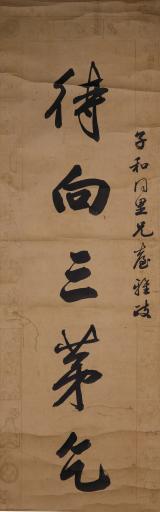 子和同里兄臺雅政
待向三茅乞